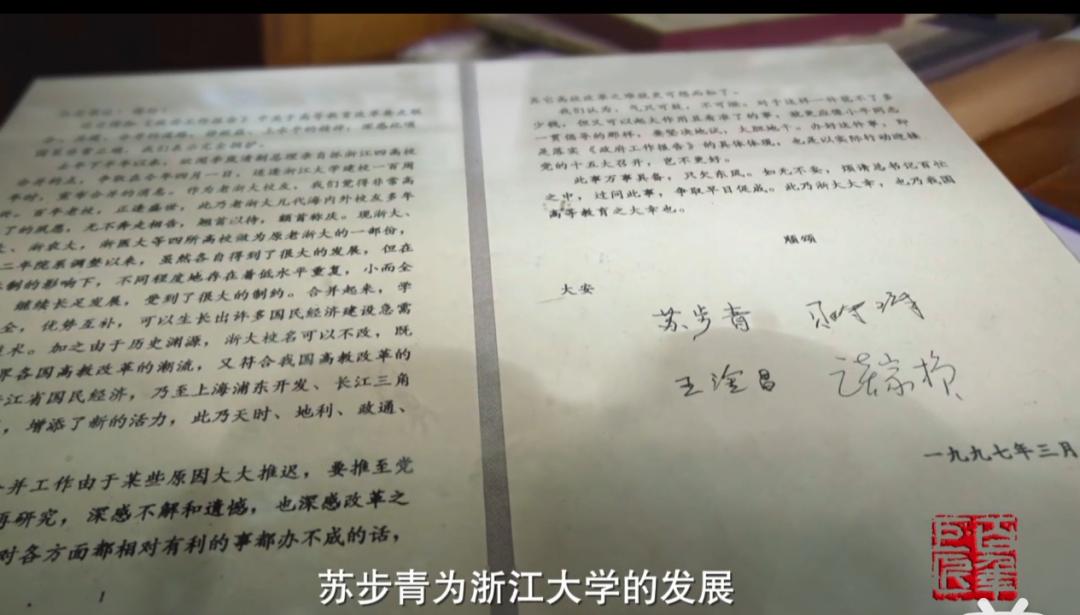 中关于高等教育改革
去年下半年以来，欣闻李岚清副总理亲自抓浙江四高校
合并的点，争取在今年四月一日，适逢浙江大学建校一百周
年时，宣布合并的消息。作为老浙大校友，我们觉得非常高
百年老校，正逢盛世，此乃老浙大几代海内外校友多年
了的夙愿，无不奔走相告，翘首以待，额首称庆。现浙大、
、浙农大、浙医大等四所高校做为原老浙大的一部份，
二年院系调整以来，虽然各自得到了很大的发展，但在
制的影响下，不同程度地存在着低水平重复，小而全
继续长足发展，受到了很大的制约。合并起来，学
全，优势互补，可以生长出许多国民经济建设急需
术。加之由于历史渊源，浙大校名可以不改，既
界各国高教改革的潮流，又符合我国高教改革的
江省国民经济，乃至上海浦东开发、长江三角
，增添了新的活力，此乃天时、地利、政通、
并工作由于某些原因大大推迟，要推至党
再研究，深感不解和遗憾，也深感改革之
对各方面都相对有利的事都办不成的话，
1
其它高校改革之难就更可想而知了。
我们认为，气只可鼓，不可泄。对于这样一件花不了多
少钱，但又可以起大作用且看准了的事，就更应像小平同志
一贯倡导的那样，要坚决地试，大胆地干。办好这件事，即
是落实《政府工作报告》的具体体现，也是以实际行动迎接
党的十五大召开，岂不更好。
此事万事具备，只欠东风。如无不妥，须请总书记百忙
之中，过问此事，争取早日促成。此乃浙大大幸，也乃我国
高等教育之大幸也。
顺颂
大安
苏步青
王淦昌 谈家桢
一九九七年三月
苏步青为浙江大学的发展